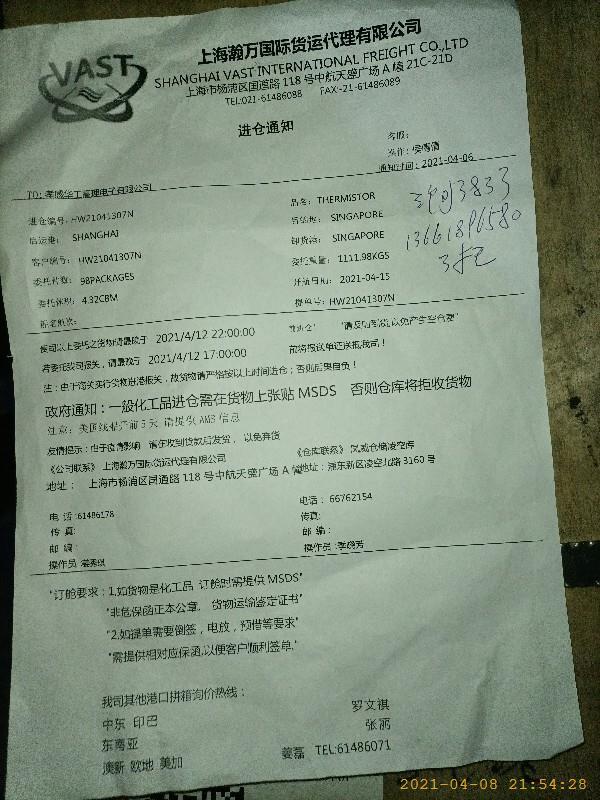 VAST
上海瀚万国际货运代理有限公司
SHANGHAI VAST INTERNATIONAL FREIGHT CO.,LTD
上海市杨浦区国通路 118 号中航天盛广场 A 楼 21C-21D
TEL:021-61486088 FAX:-21-61486089
进仓通知
客服:
操作:
通知时间: 2021-04-06
TO: 孝感华工高理电子有限公司
进仓编号: HW21041307N
品名: THERMISTOR
启运港: SHANGHAI
目的港: SINGAPORE
客户编号: HW21041307N
卸货港: SINGAPORE
委托件数: 98PACKAGES
委托重量: 1111.98KGS
委托体积: 4.32CBM
开航日期: 2021-04-15
船名航次:
提单号: HW21041307N
3833
13661896580
2021/4/12 22:00:00
2021/4/12 17:00:00
注:由于海关实行货物进港报关,故货物请严格按以上时间进仓;否则后果自负!
政府通知:一般化工品进仓需在货物上张贴 MSDS 否则仓库将拒收货物
注意: 美国线船开前 5 天 请提供 AMS 信息
友情提示:由于疫情影响 请在收到货款后发货, 以免弃货
《公司联系》上海瀚万国际货运代理有限公司
地址: 上海市杨浦区国通路 118 号中航天盛广场 A 楼
地址: 浦东新区凌空北路 3160 号
电 话:61486178
电话: 66762154
传 真:
传真:
邮 编:
邮 编:
操作员
操作员
"订舱要求:1.如货物是化工品 订舱时需提供 MSDS"
"非危保函正本公章, 货物运输鉴定证书"
"2.如提单需要倒签,电放,预借等要求"
"需提供相对应保函,以便客户顺利签单."
我司其他港口拼箱询价热线:
中东 印巴 罗文祺
东南亚 张丽
澳新 欧地 美加 姜磊 TEL:61486071
2021-04-08 21:54:28